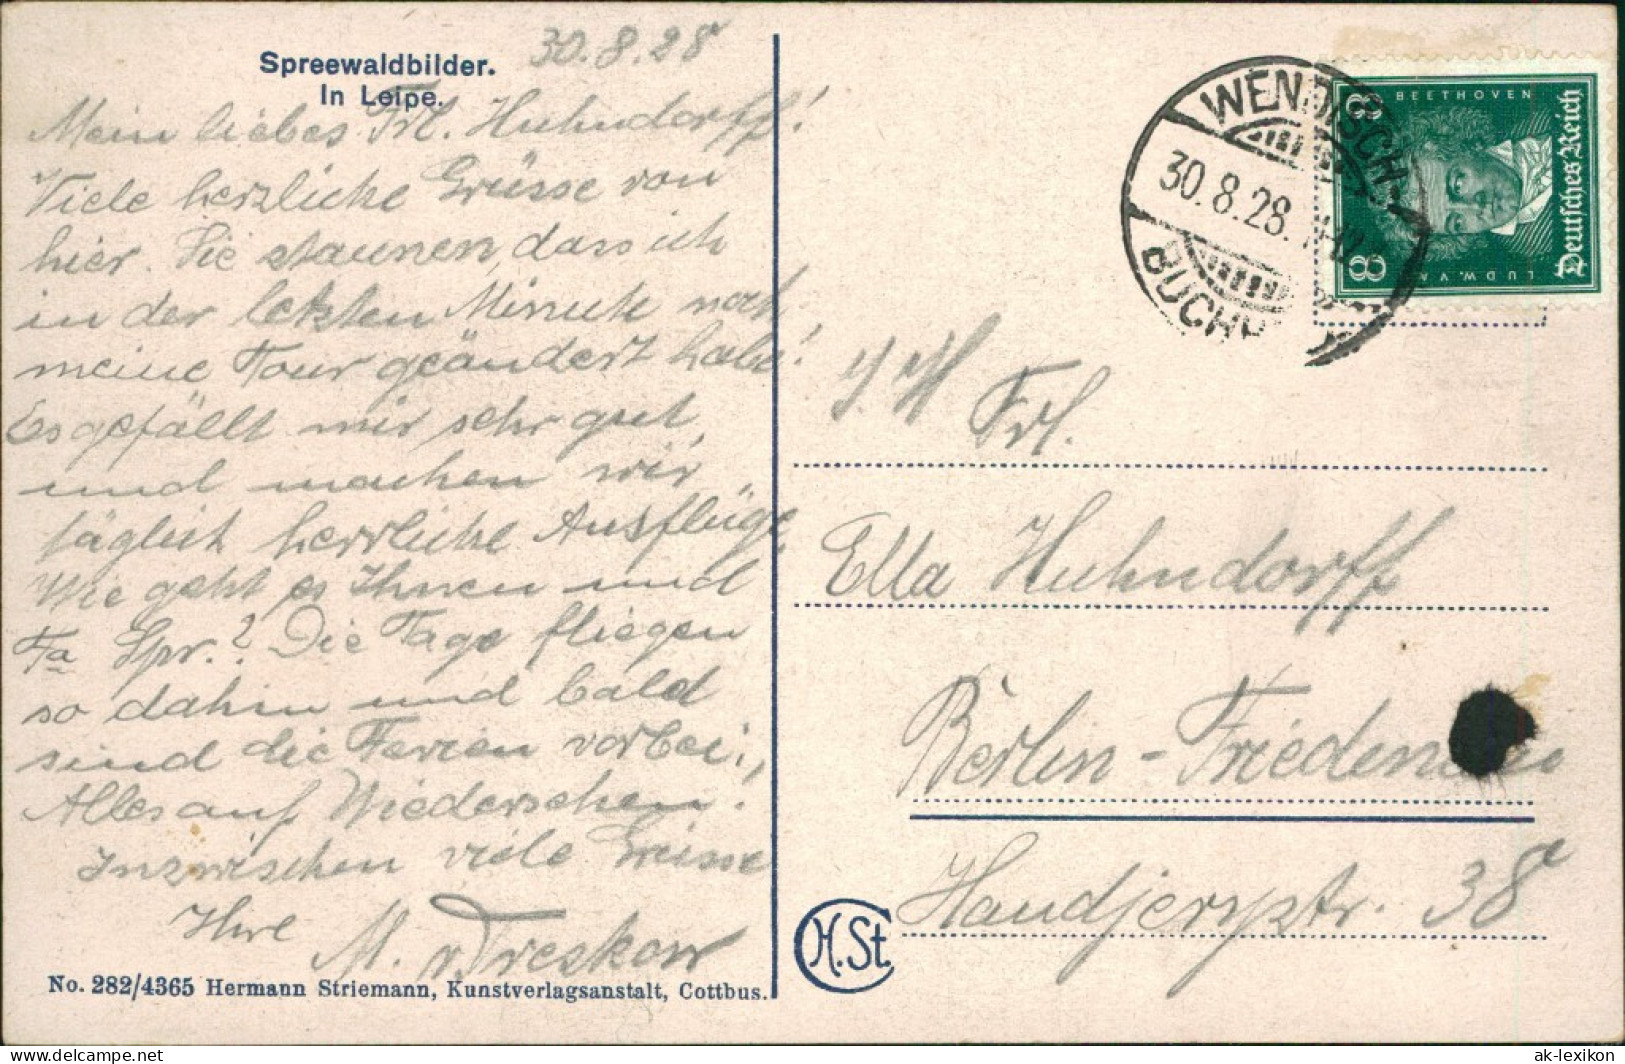 Spreewaldbilder.
In Leipe.
30.8.28
Mein liebes Frl. Huhndorff!
Viele herzliche Grüsse von
hier. Sie staunen, dass ich
in der letzten Minute noch
meine Tour geändert habe!
Es gefällt mir sehr gut,
und machen wir
täglich herrliche Ausflüge.
Wie geht es Ihnen und
Fa Spr.? Die Tage fliegen
so dahin und bald
sind die Ferien vorbei,
Alles auf Wiedersehen!
Inzwischen viele Grüsse
Ihre
M. v. Treskow
No. 282/4365 Hermann Striemann, Kunstverlagsanstalt, Cottbus.
WENDISCH
30.8.28.
BUCHH
BEETHOVEN
8
Deutsches Reich
8
LUDW. VAN
Frl.
Ella Huhndorff
Berlin-Friedenau
Handjerystr. 38
H.St.
ak-lexikon
the-collector-shop @ delcampe